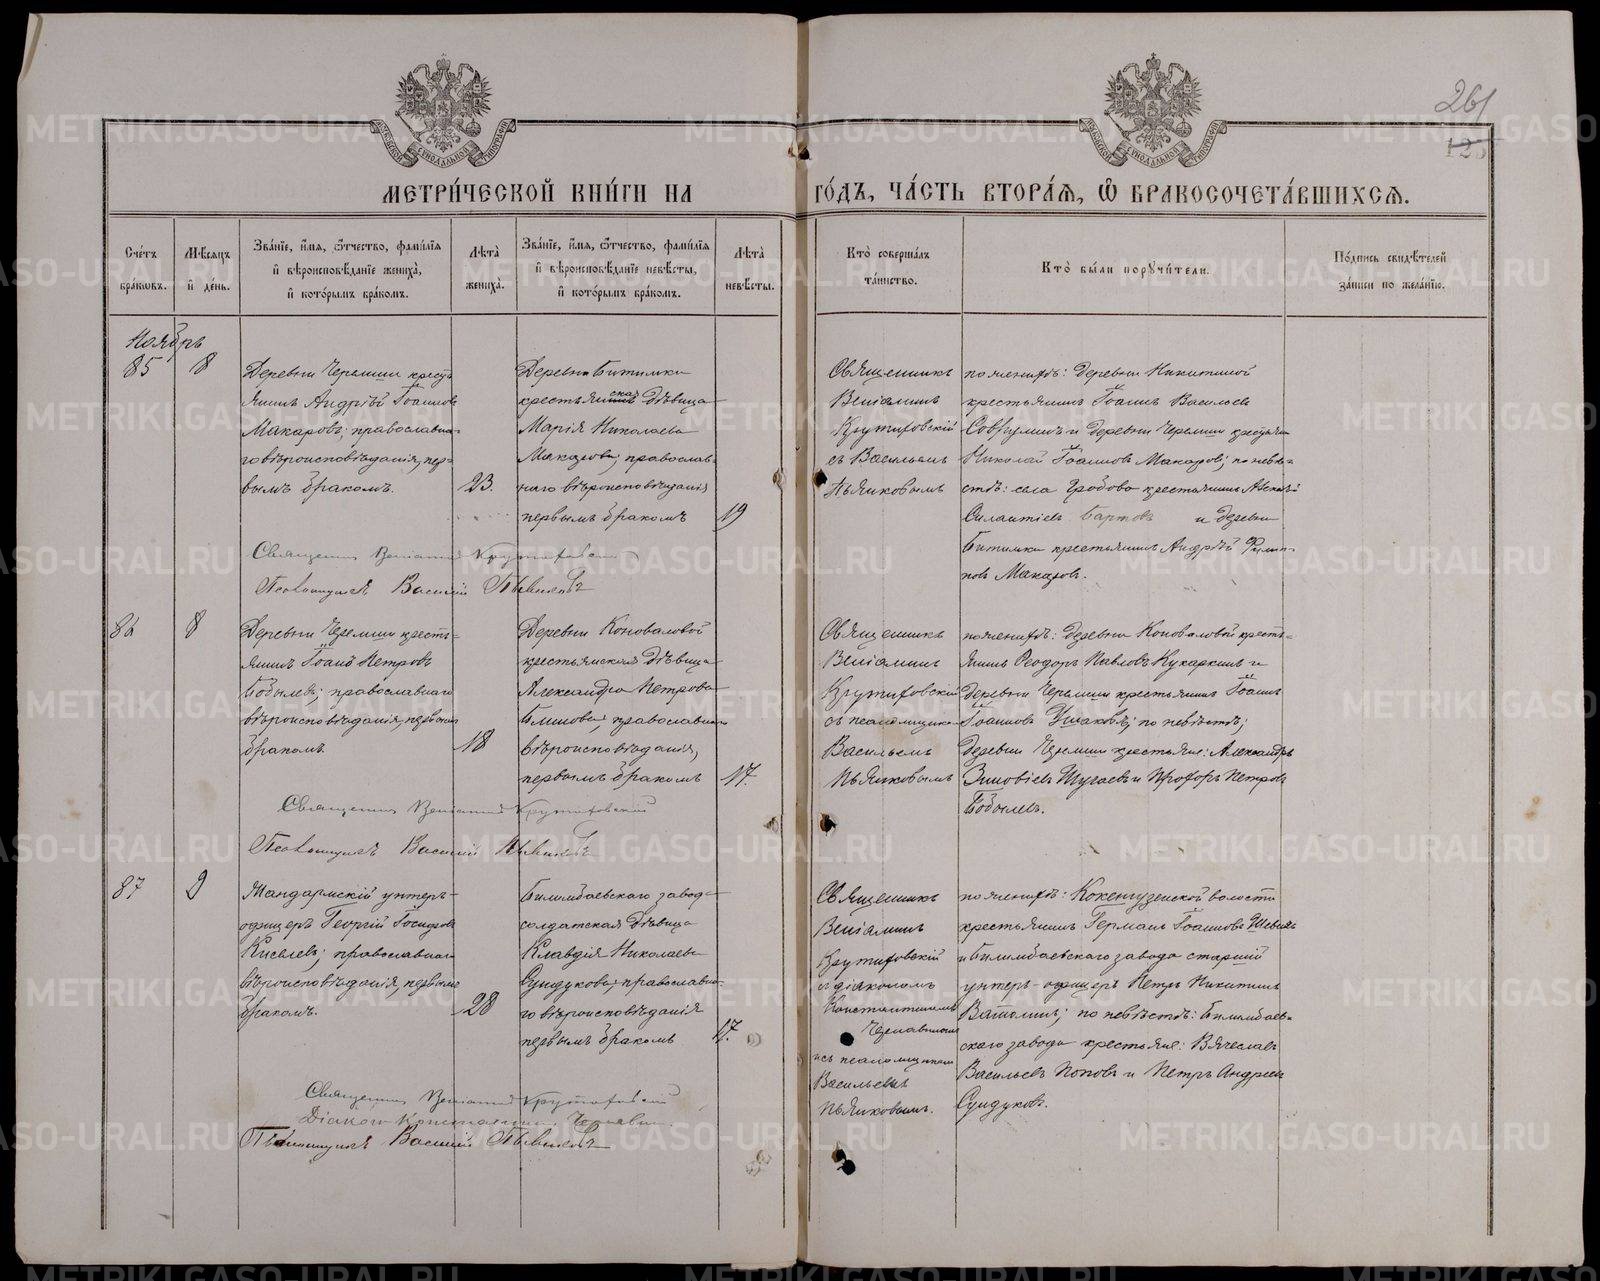 261
125
МЕТРИ́ЧЕСКОЙ КНИ́ГИ НА ГО́ДЪ, ЧА́СТЬ ВТОРА́Ѧ, Ѿ БРАКОСОЧЕТА́ВШИХСѦ.
Сче́тъ бра́ковъ.
Мѣ́сяцъ и҆ де́нь.
Зва́нїе, и҆́мѧ, ѻ҆́тчество, фами́лїѧ и҆ вѣроисповѣ́данїе жениха̀, и҆ кото́рымъ бра́комъ.
Лѣ́та жениха̀.
Зва́нїе, и҆́мѧ, ѻ҆́тчество, фами́лїѧ и҆ вѣроисповѣ́данїе невѣ́сты, и҆ кото́рымъ бра́комъ.
Лѣ́та невѣ́сты.
Кто̀ соверша́лъ та́инство.
Кто̀ бы́ли порꙋчи́тели.
По́дпись свидѣ́телей за́писи по жела́нїю.
Ноябрь
85
8
Деревни Черемши кресть-
янинъ Андрей Іоанновъ
Макаровъ; православна-
го вѣроисповѣданія, пер-
вымъ бракомъ.
23.
Деревни Битимки
крестьянская дѣвица
Марія Николаева
Макарова; православ-
наго вѣроисповѣданія
первымъ бракомъ
19
Священникъ
Веніаминъ
Крутиховскій
съ Васильемъ
Пьянковымъ
по женихѣ: Деревни Никитиной
крестьянинъ Іоаннъ Васильевъ
и деревни Черемши крестьян
Николай Іоанновъ Макаровъ; по невѣ-
стѣ: села Гробово крестьянинъ Алексѣй
Силантіевъ Бартовъ и деревни
Битимки крестьянинъ Андрей Филип-
повъ Макаровъ.
Священникъ Веніаминъ Крутиховскій
Псаломщикъ Василій Пьянковъ
86
8
Деревни Черемши кресть-
янинъ Іоаннъ Петровъ
Бобылевъ; православнаго
вѣроисповѣданія, первымъ
бракомъ.
18
Деревни Коноваловой
крестьянская дѣвица
Александра Петрова
Блинова; православнаго
вѣроисповѣданія,
первымъ бракомъ
17.
Священникъ
Веніаминъ
Крутиховскій
съ псаломщикомъ
Васильемъ
Пьянковымъ
по женихѣ: Деревни Коноваловой кресть-
янинъ Ѳеодоръ Павловъ Кукаркинъ и
деревни Черемши крестьянинъ Іоаннъ
Іоанновъ Ушаковъ; по невѣстѣ;
Деревни Черемши крестьяне: Александръ
Зиновіевъ Шугаевъ и Профоръ Петровъ
Бобылевъ.
Священникъ Веніаминъ Крутиховскій
Псаломщикъ Василій Пьянковъ
87
9
Жандармскій унтеръ-
офицеръ Георгій Іосифовъ
Киселевъ; православнаго
вѣроисповѣданія, первымъ
бракомъ.
28
Билимбаевскаго завода
солдатская дѣвица
Клавдія Николаева
Сундукова; православна-
го вѣроисповѣданія
первымъ бракомъ
17.
Священникъ
Веніаминъ
Крутиховскій
съ діакономъ
Константиномъ
Чернавинымъ
и съ псаломщикомъ
Васильемъ
Пьянковымъ.
по женихѣ: Кокенгузенской волости
крестьянинъ Германъ Іоанновъ
и Билимбаевскаго завода старшій
унтеръ-офицеръ Петръ Никитинъ
по невѣстѣ: Билимбаев-
скаго завода крестьяне: Вячеславъ
Васильевъ Поповъ и Петръ Андреевъ
Сундуковъ.
Священникъ Веніаминъ Крутиховскій
Діаконъ Константинъ Чернавинъ
Псаломщикъ Василій Пьянковъ